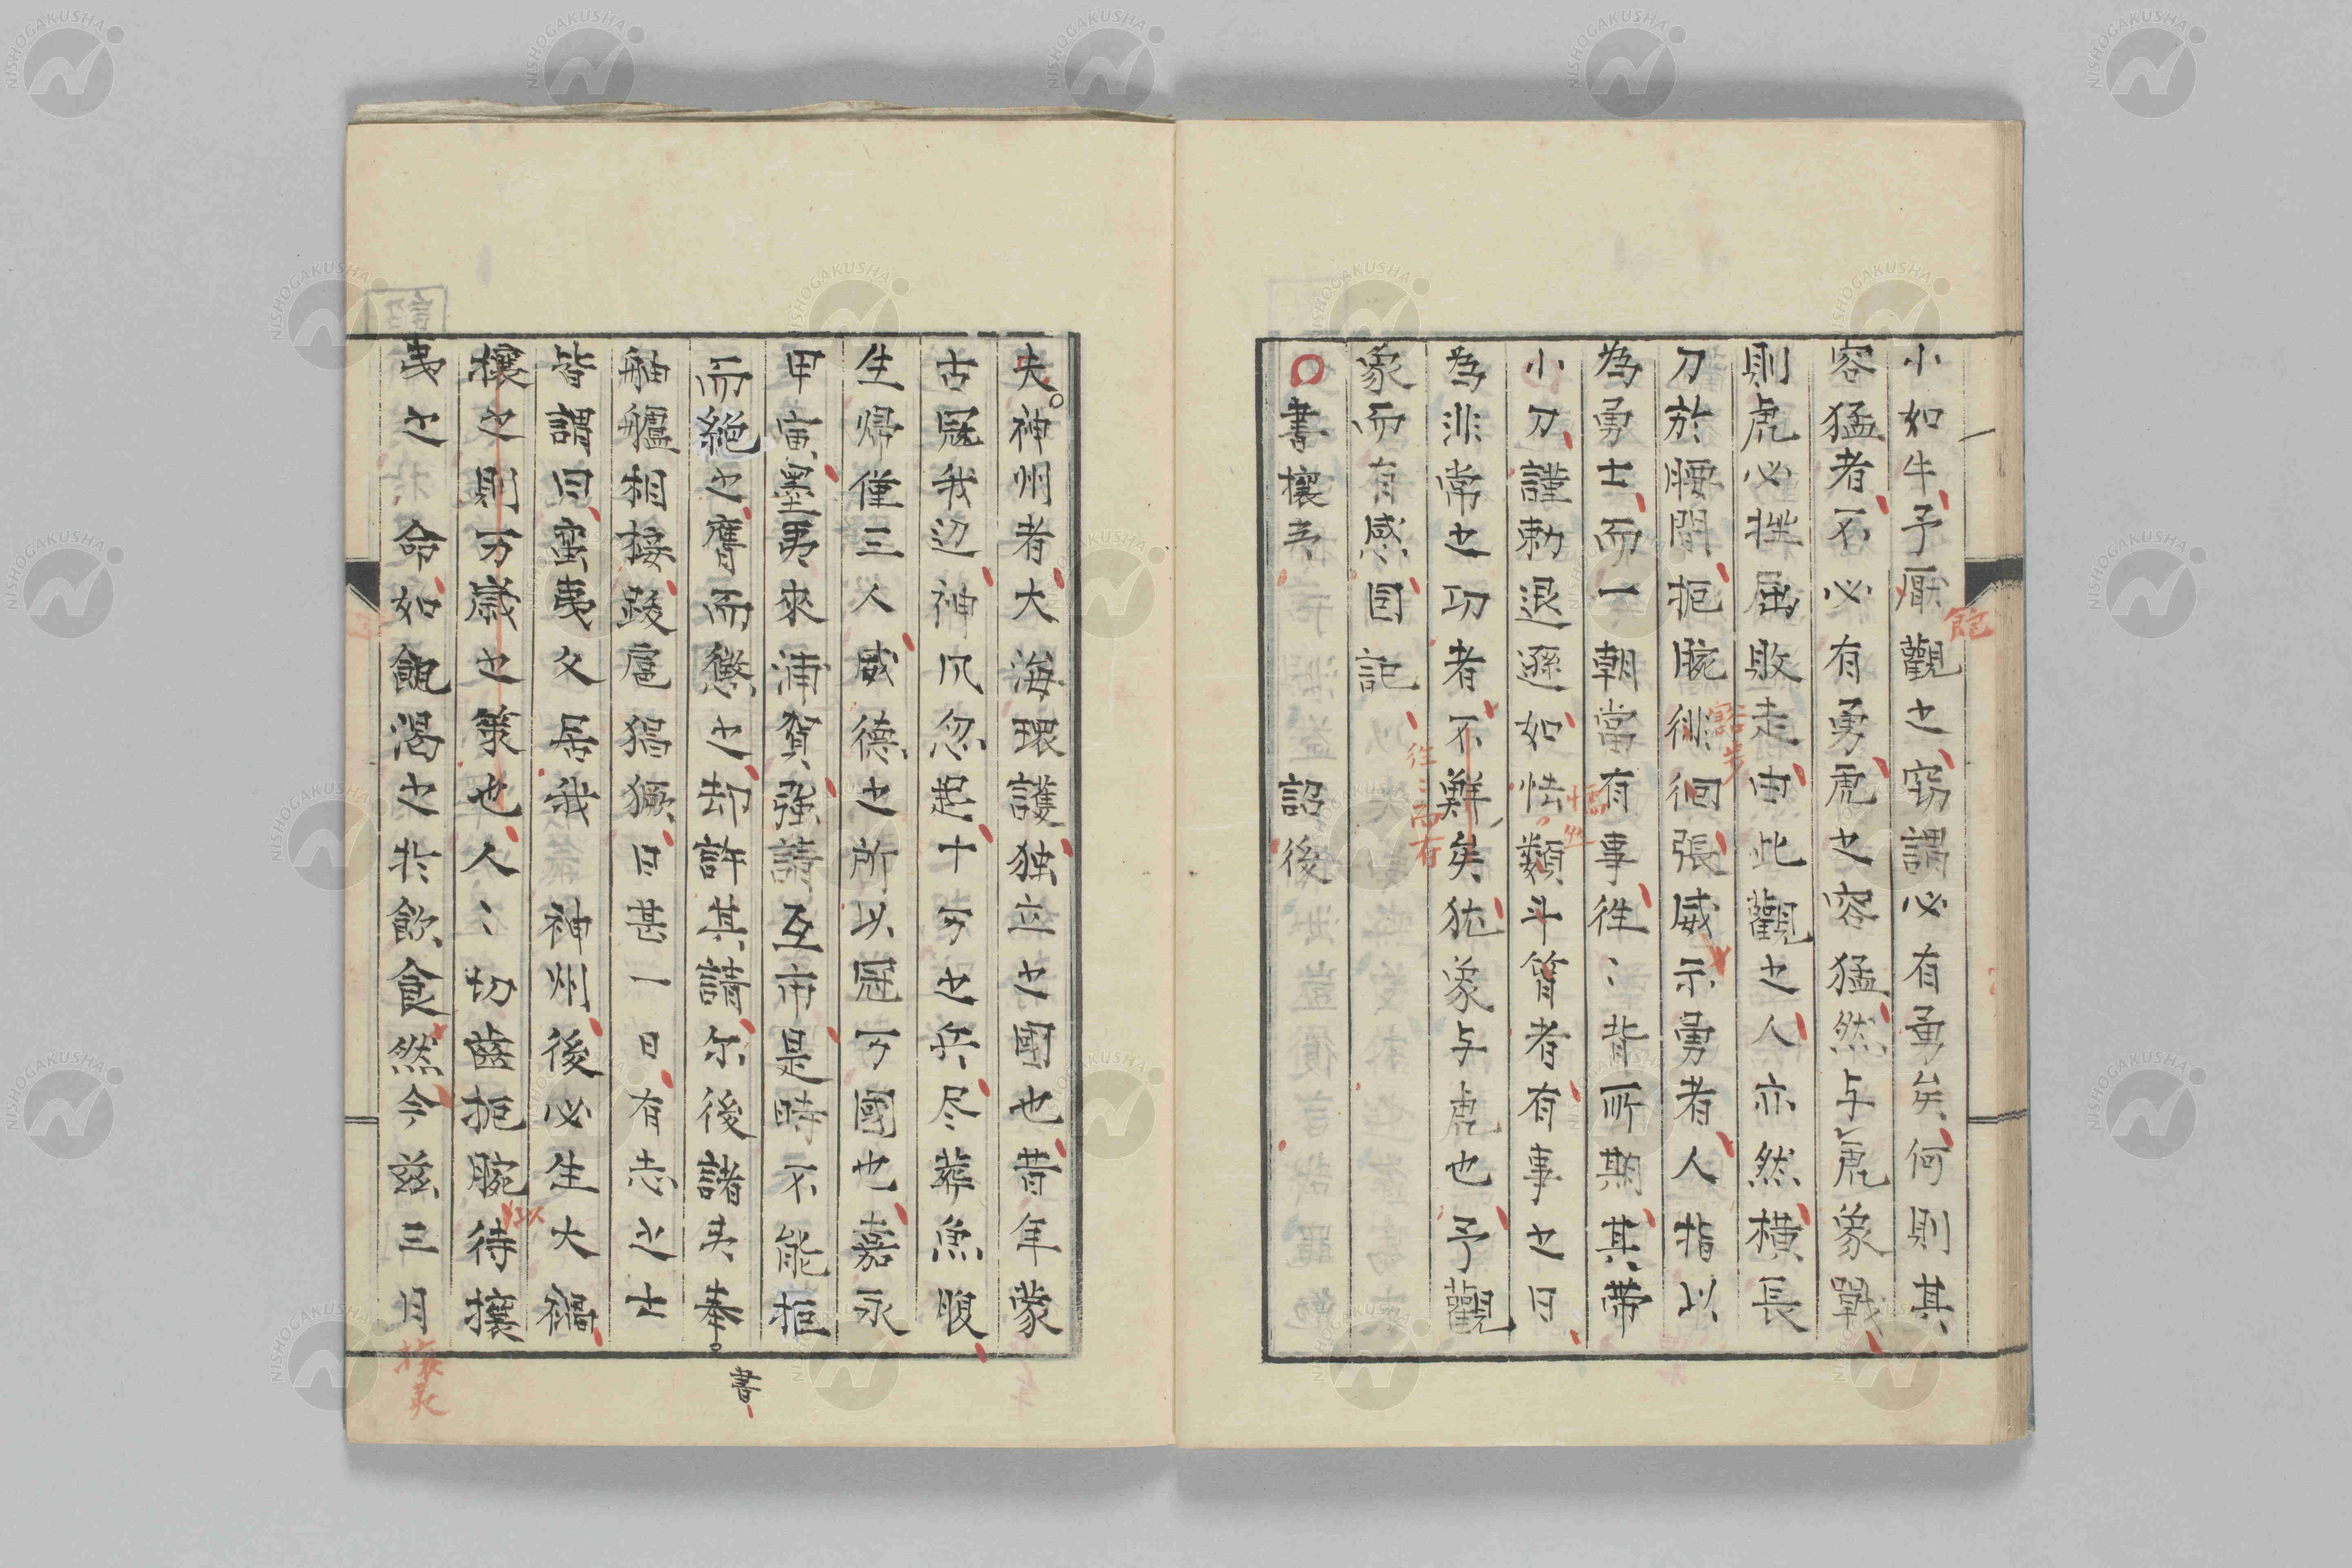 小如牛予厭觀之窃謂必有勇矣何則其
容猛者不必有勇虎之容猛然与虎象戰
則虎必牲屈敗走由此觀之人亦然横長
刀於腰間扼腕徘徊張威示勇者人指以
為勇士而一朝當有事徃〻背所期其帶
小刀謹勅退遜如怯類斗筲者有事之日
為非常之功者不難矣犹象与虎也予觀
象而有感因記
書攘夷 詔後
夫神州者大海環護独立之國也昔年蒙
古冦我辺神风忽起十万之兵尽葬魚腹
生帰僅三人威徳之所以冠万國也嘉永
甲寅墨夷來浦賀强請互市是時不能拒
而絶之膺而懲之却許其請尓後諸夷奉書
舳艫相接跋扈猖獗日甚一日有志之士
皆謂曰蛮夷久居我 神州後必生大禍
攘之則万歳之策也人〻切齒扼腕待攘
夷之 命如飢渇之於飲食然今茲三月
飽
豁步
攘夷
NISHOGAKUSHA